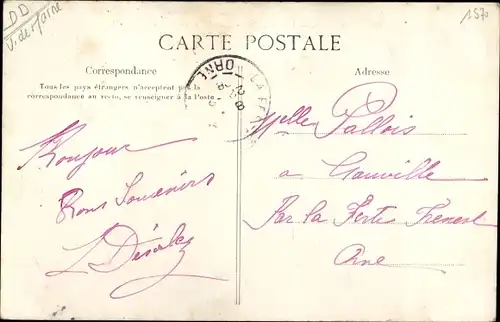 DD
1570
CARTE POSTALE
Correspondance
Tous les pays étrangers n'acceptent pas la
correspondance au recto, se renseigner à la Poste
Adresse
ORNE
LA FER
Melle Pallois
Bonjour
a Glauville
Bons Souvenirs
Par la Ferte Frenesl
Orne